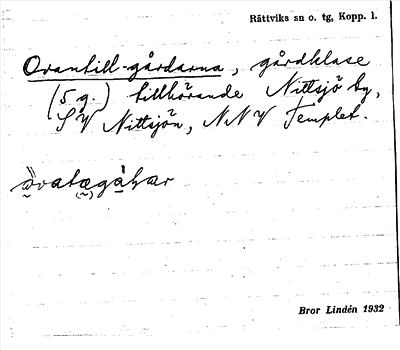 Rättviks sn o. tg, Kopp. l.
Ovantill-gårdarna, gårdklase
(5 g.) tillhörande Nittsjö by,
SV Nittsjön, NNV Templet.
Bror Lindén 1932